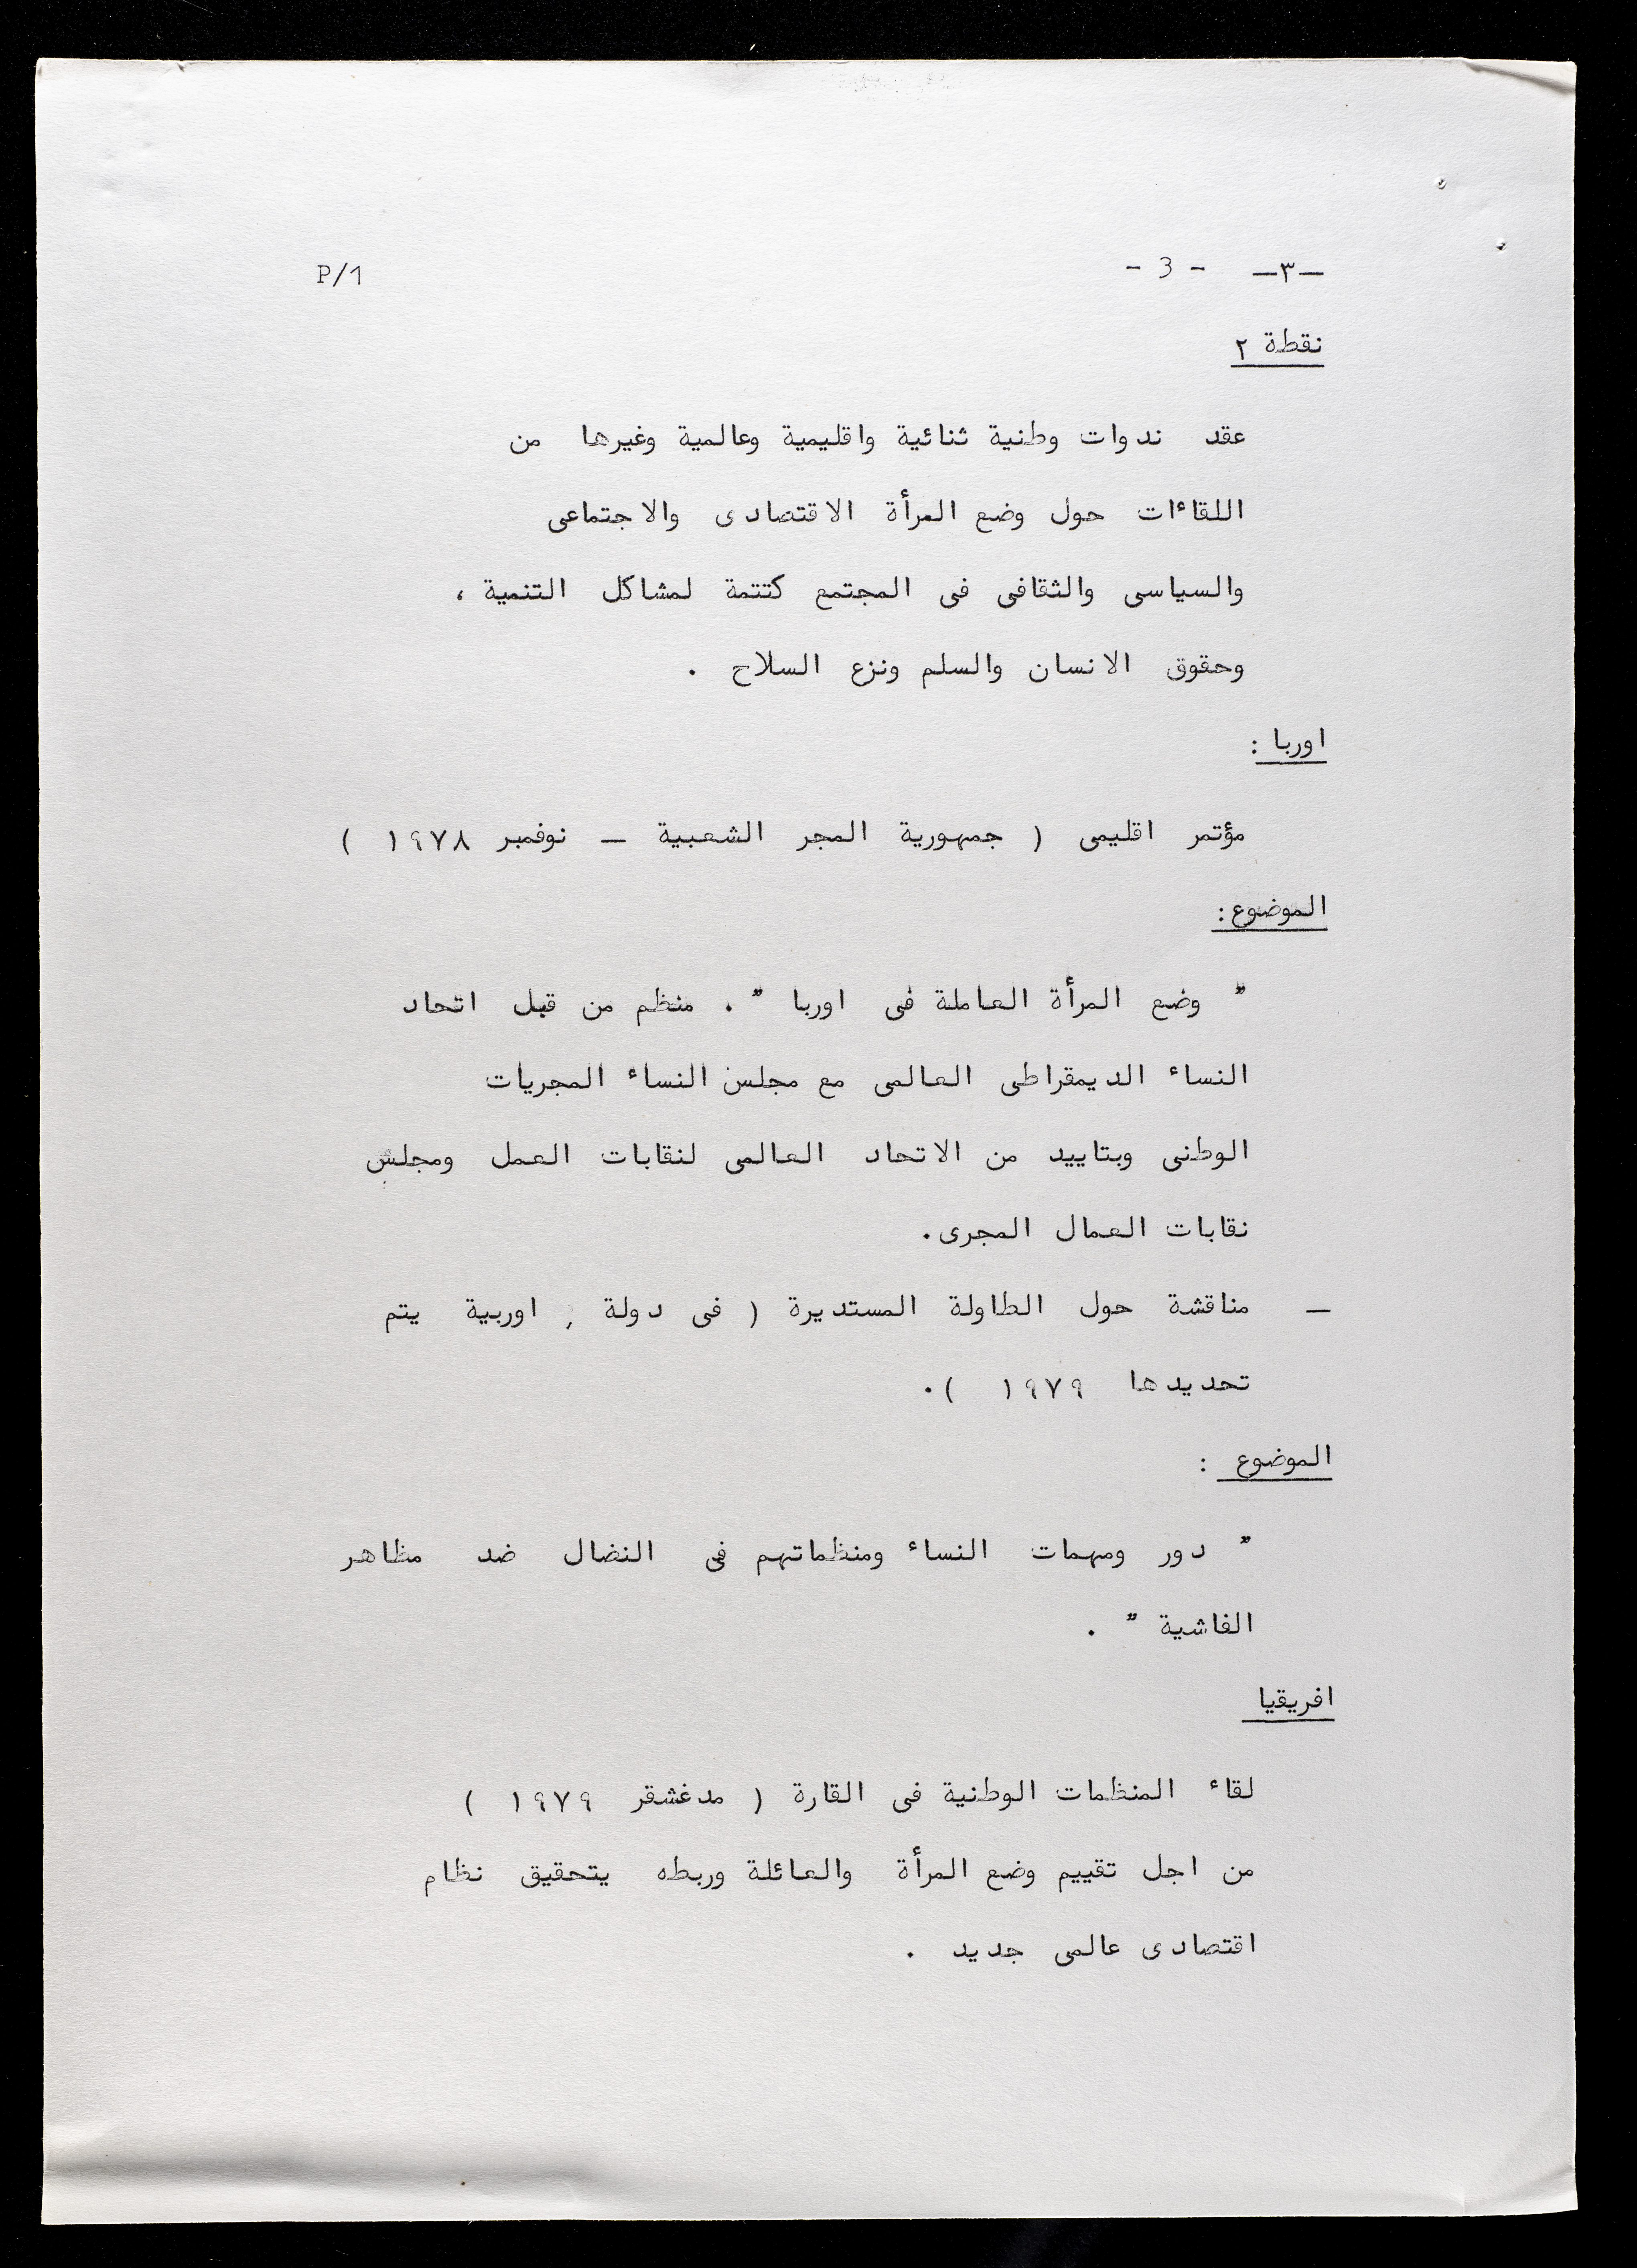 —٣— - 3 - P/1
نقطة ٢
عقد ندوات وطنية ثنائية واقليمية وعالمية وغيرها من
اللقاءات حول وضع المرأة الاقتصادى والاجتماعى
والسياسى والثقافى فى المجتمع كتتمة لمشاكل التنمية ،
وحقوق الانسان والسلم ونزع السلاح .
اوربا :
مؤتمر اقليمى ( جمهورية المجر الشعبية — نوفمبر ١٩٧٨ )
الموضوع:
" وضع المرأة العاملة فى اوربا " . منظم من قبل اتحاد
النساء الديمقراطى العالمى مع مجلس النساء المجريات
الوطنى وبتاييد من الاتحاد العالمى لنقابات العمل ومجلس
نقابات العمال المجرى.
— مناقشة حول الطاولة المستديرة ( فى دولة , اوربية يتم
تحديدها ١٩٧٩ ).
الموضوع :
" دور ومهمات النساء ومنظماتهم فى النضال ضد مظاهر
الفاشية " .
افريقيا
لقاء المنظمات الوطنية فى القارة ( مدغشقر ١٩٧٩ )
من اجل تقييم وضع المرأة والعائلة وربطه يتحقيق نظام
اقتصادى عالمى جديد .